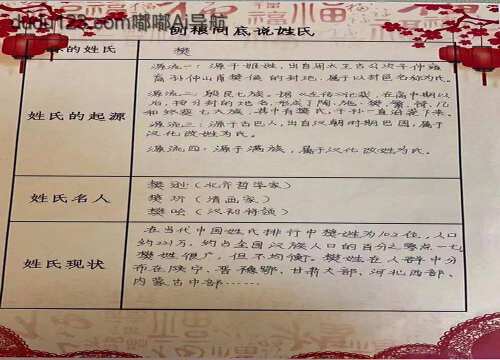 dudu123.com嘟嘟AI导航
刨根问底说姓氏
的姓氏
樊
姓氏的起源
源流一：源于姬姓，出自周太王古公次子仲雍
裔孙仲山甫樊侯的封地，属于以封邑名称为氏。
源流二：殷民七族。据《左传》记载，在商中期以
后，按分封的地名，形成了陶、施、樊、繁、锜、几
和终葵七大族，其中有樊氏，子孙一直沿袭下来。
源流三：源于古巴人，出自汉朝时期巴国，属于
汉化改姓为氏。
源流四：源于满族，属于汉化改姓为氏。
姓氏名人
樊逊（北齐哲学家）
樊圻（清画家）
樊哙（汉初将领）
姓氏现状
在当代中国姓氏排行中樊姓为102位，人口
约221万，约占全国汉族人口的百分之零点一七
樊姓很广，但不均衡。樊姓在人群中分
布在陕宁、晋豫鄂、甘肃大部、河北西部、
内蒙古中部……